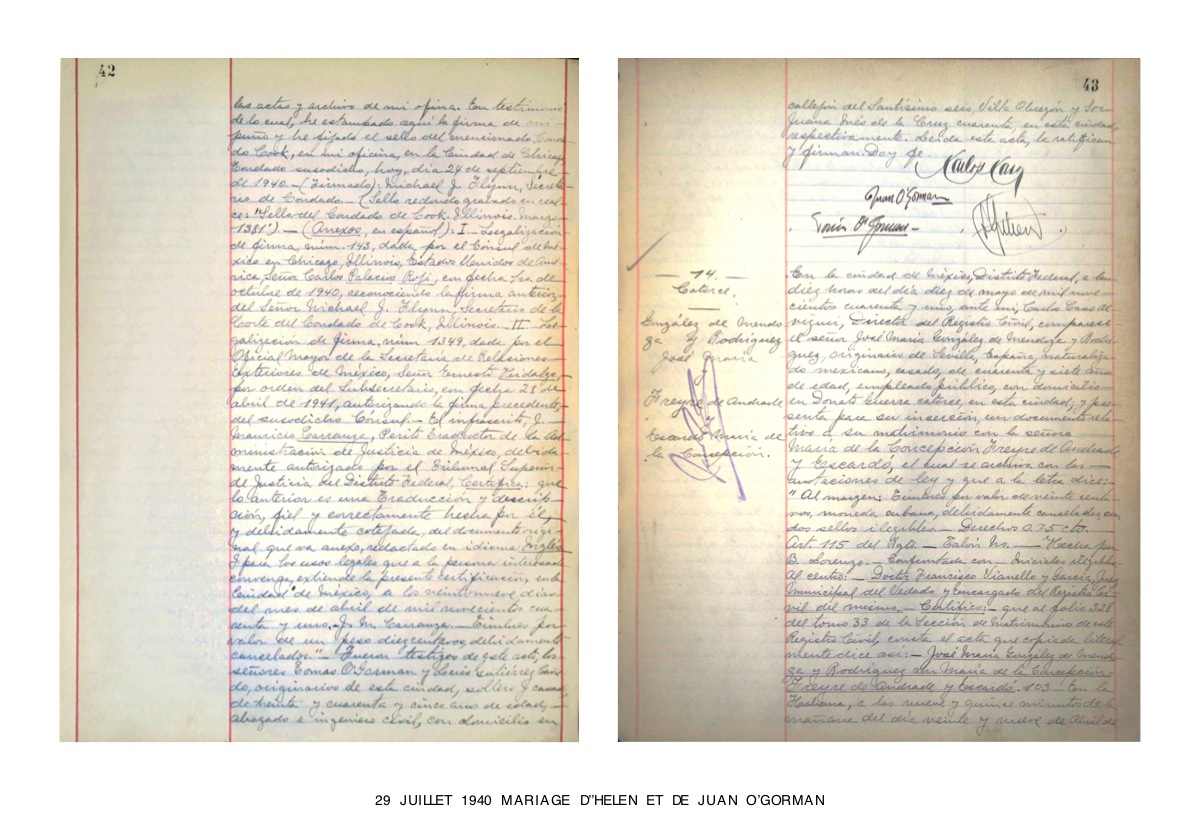 42
las actas y archivo de mi oficina. En testimonio
de lo cual, he estampado aquí la firma de mi
puño y he fijado el sello del mencionado Conda-
do Cook, en mi oficina, en la Ciudad de Chicago,
Condado susodicho, hoy, día 24 de septiembre
de 1940.-(Firmado): Michael J. Flynn, Secreta-
rio de Condado.- (Sello redondo grabado en real-
ce: "Sello del Condado de Cook. Illinois. Marzo
1381").- (Anexos, en español): I- Legalización
de firma, núm. 143, dada por el Cónsul de Mé-
xico en Chicago, Illinois, Estados Unidos de Amé-
rica, Señor Carlos Palacio Roji, con fecha 1o. de
octubre de 1940, reconociendo la firma anterior,
del Señor Michael J. Flynn, Secretario de la
Corte del Condado de Cook, Illinois.- II- Le-
galización de firma, núm 1349, dada por el
Oficial Mayor de la Secretaría de Relaciones
Exteriores de México, Señor Ernesto Hidalgo,
por orden del Subsecretario, con fecha 28 de
abril de 1941, autorizando la firma precedente,
del susodicho Cónsul.- El infrascrito, J.
Mauricio Carranza, Perito Traductor de la Ad-
ministración de Justicia de México, debida-
mente autorizado por el Tribunal Superior
de Justicia del Distrito Federal, Certifica: que
lo anterior es una Traducción y descrip-
ción, fiel y correctamente hecha por él,
y debidamente cotejada, del documento origi-
nal que va anexo, redactado en idioma Inglés
I para los usos legales que a la persona interesada
convenga, extiende la presente certificación, en la
Ciudad de México, a los veintinueve días
del mes de abril de mil novecientos cua-
renta y uno.- J. M. Carranza.- Timbres por
valor de un peso diez centavos, debidamente
cancelados."- Fueron testigos de este acto, los
señores Tomas O'Gorman y Luis Gutiérrez
do, originarios de esta ciudad, soltero y casado,
de treinta y cuarenta y cinco años de edad,
abogado e ingeniero civil, con domicilio en
43
callejón del Santísimo seis, Villa Obregón y Sor
Juana Inés de la Cruz cuarenta, en esta ciudad,
respectivamente. Leída esta acta, la ratifican
y firman. Doy fe.
Juan O'Gorman
Tomás O'Gorman
- 14. -
Catorce.
González de Mendo-
za y Rodríguez
José María
y
Freyre de Andrade
y
Escardó María de
la Concepción.
En la ciudad de México, Distrito Federal, a las
diez horas del día diez de mayo de mil nove-
cientos cuarenta y uno, ante mí, Carlos
Director del Registro Civil, comparece
el señor José María González de Mendoza y Rodrí-
guez, originario de Sevilla, España, naturaliza-
do mexicano, casado, de cuarenta y siete años
de edad, empleado público, con domicilio
en Donato Guerra catorce, en esta ciudad, y pre-
senta para su inserción, un documento rela-
tivo a su matrimonio con la señora
María de la Concepción Freyre de Andrade
y Escardó, el cual se archiva con las
anotaciones de ley y que a la letra dice:
"Al margen: Timbres por valor de veinte centa-
vos, moneda cubana, debidamente cancelados, con
dos sellos ilegibles.- Derechos 0.75 cts.
Art. 115 del Rgto. - Talón No. - Hecha por
B. Lorenzo. Confrontada con- Iniciales ilegibles
Al centro:- Doctor Francisco Vianello y García, Juez
Municipal del Vedado y Encargado del Registro Ci-
vil del mismo,- Certifico:- que al folio 328
del tomo 33 de la Sección de Matrimonios de este
Registro Civil, consta el acta que copiada litera-
mente dice así:- José María González de Mendo-
za y Rodríguez con María de la Concepción
Freyre de Andrade y Escardó. 103.- En la
Habana, a las nueve y quince minutos de la
mañana del día veinte y nueve de Abril de
29 JUILLET 1940 MARIAGE D''HELEN ET DE JUAN O'GORMAN